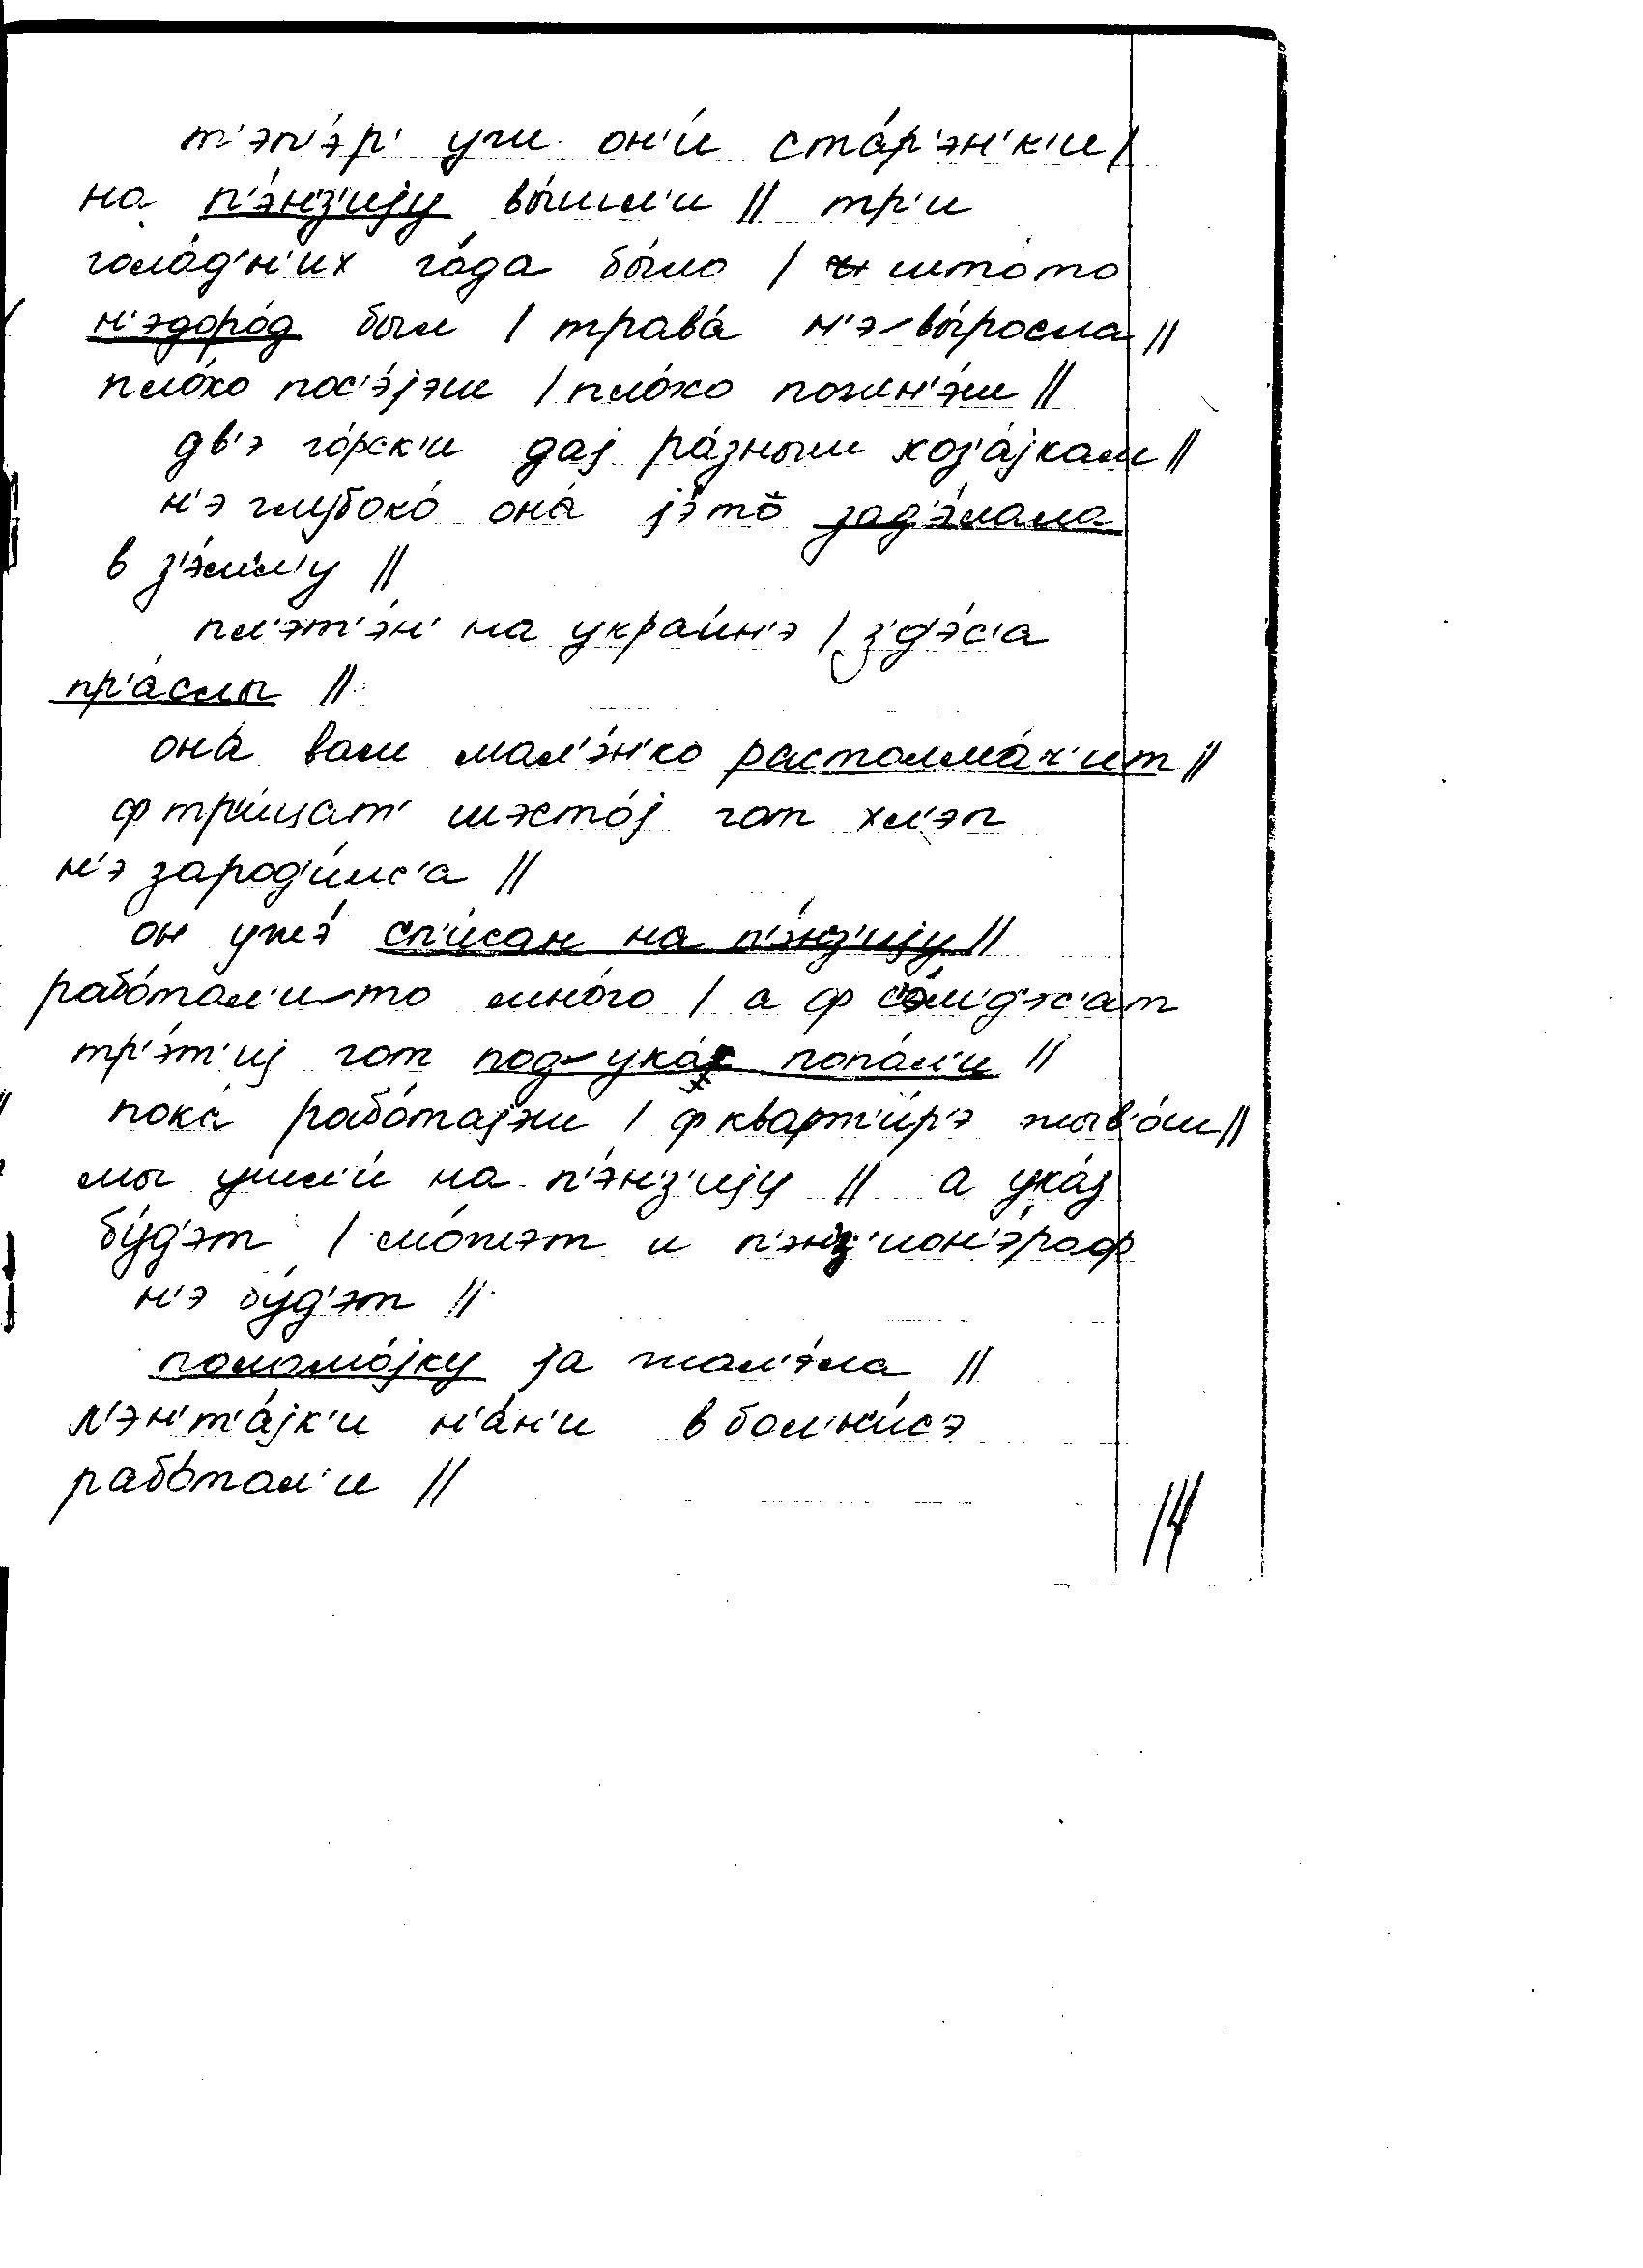 т'эп'э́р' уж он'и́ ста́р'эн'к'и /
на п'э́нз'ију вы́шл'и // тр'и
гола́д'н'их го́да бы́ло / што́то
н'эдоро́д был / трава́ н'э вы́росла //
пло́хо пос'э́јэш / пло́хо пожн'э́ш //
дв'э го́рск'и дај ра́зным хоз'а́јкам //
н'э глубоко́ она́ јэ́то зад'э́лала
в з'э́мл'у //
пл'эт'э́н' на украи́н'э / з'д'э́с'а
пр'а́слы //
она́ вам мал'э́н'ко растолма́ч'ит //
ф тр'и́цат' шэсто́ј гот хл'эп
н'э зарод'и́лс'а //
он ужэ́ сп'и́сан на п'э́нз'ију //
рабо́тал'и-то мно́го / а ф с'э́м'д'эс'ат
тр'э́т'иј гот под ука́з попа́л'и //
пока́ рабо́тајэш / ф кварт'и́р'э жыв'о́ш //
мы ушл'и́ на п'э́нз'ију // а ука́з
бу́д'эт / мо́жэт и п'энз'ион'э́роф
н'э бу́д'эт //
поломо́јку ја жал'э́ла //
л'эн'т'а́јк'и н'а́н'и в бол'ни́сэ
рабо́тал'и //
14